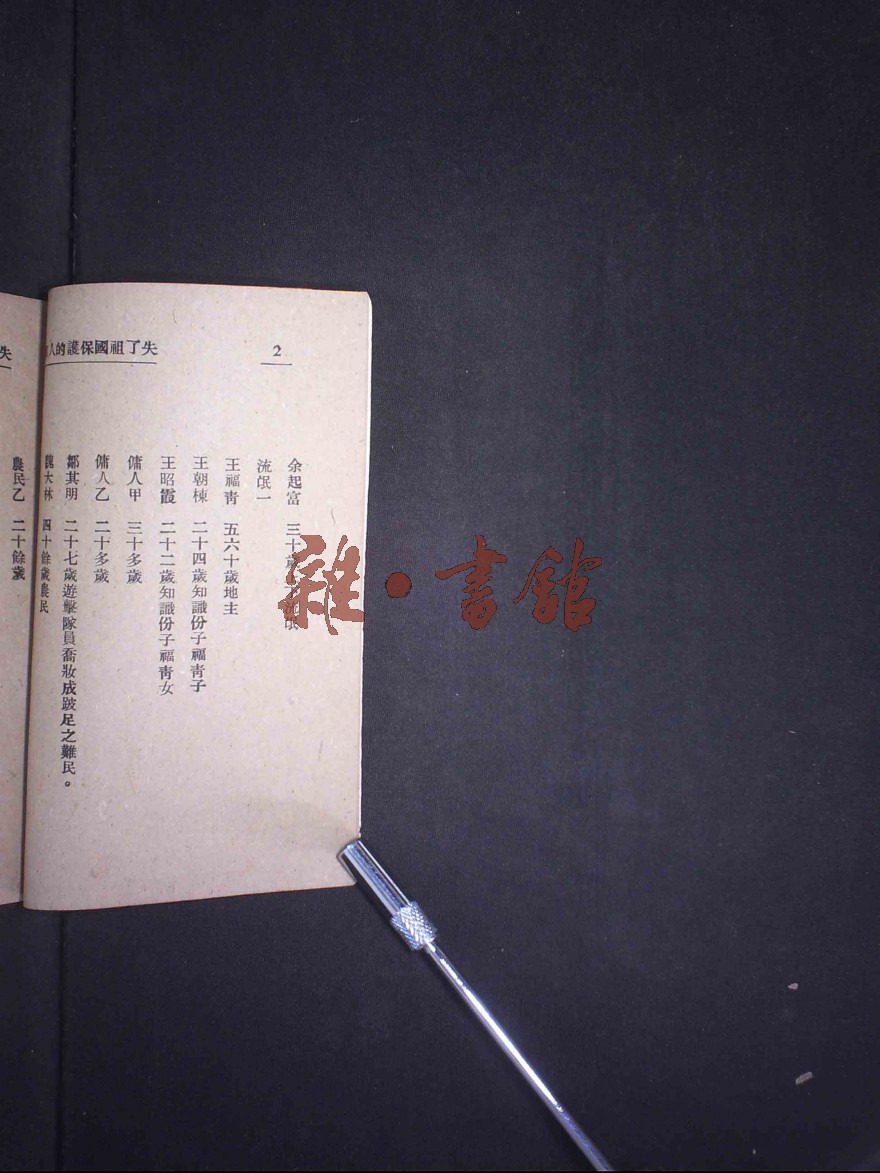 2
失了祖國保護的人
余起富 三十
流氓一
王福靑 五六十歲地主
王朝棟 二十四歲知識份子福靑子
王昭霞 二十二歲知識份子福靑女
傭人甲 三十多歲
傭人乙 二十多歲
鄒其明 二十七歲遊擊隊員喬妝成跛足之難民。
魏大林 四十餘歲農民
失
農民乙 二十餘歲
雜·書館